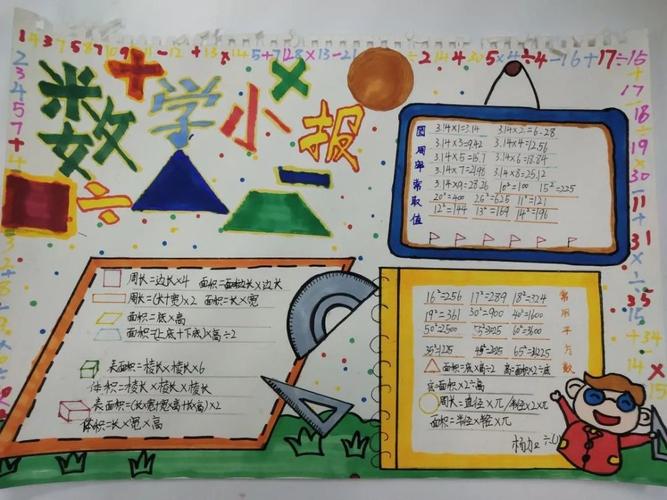 数学小报
圆周率常取值
3.14×1=3.14 3.14×2=6.28
3.14×3=9.42 3.14×4=12.56
3.14×5=15.7 3.14×6=18.84
3.14×7=21.98 3.14×8=25.12
3.14×9=28.26 10²=100 15²=225
20²=400 25²=625 11²=121
12²=144 13²=169 14²=196
周长=边长×4 面积=边长×边长
周长=(长+宽)×2 面积=长×宽
面积=底×高
面积=(上底+下底)×高÷2
表面积=棱长×棱长×6
体积=棱长×棱长×棱长
表面积=(长×宽+宽×高+长×高)×2
体积=长×宽×高
常用平方数
16²=256 17²=289 18²=324
19²=361 30²=900 40²=1600
50²=2500 60²=3600
65²=4225
面积=底×高÷2 高=面积×2÷底
底=面积×2÷高
周长=直径×π/半径×2×π
面积=半径×半径×π